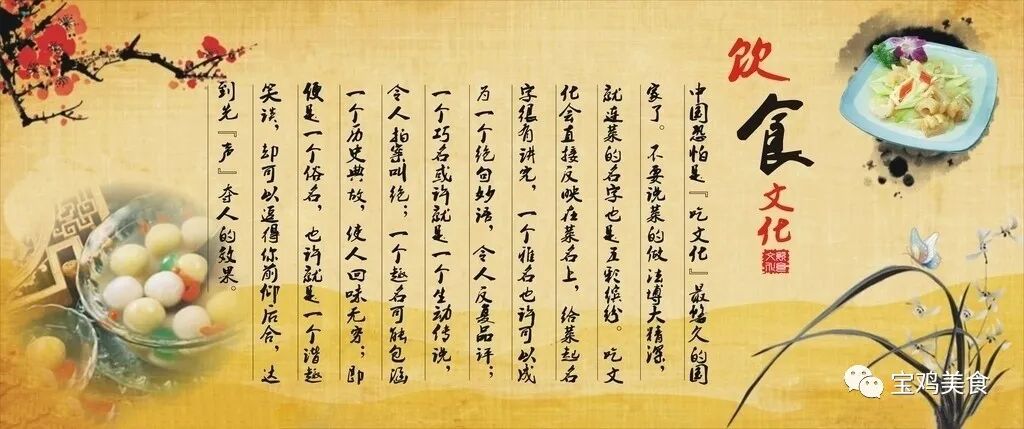 饮食文化
中国恐怕是『吃文化』最悠久的国
家了。不要说菜的做法博大精深，
就连菜的名字也是五彩缤纷。吃文
化会直接反映在菜名上，给菜起名
字很有讲究，一个雅名也许可以成
为一个绝句妙语，令人反复品评；
一个巧名或许就是一个生动传说，
令人拍案叫绝；一个趣名可能包涵
一个历史典故，使人回味无穷；即
便是一个俗名，也许就是一个谐趣
笑谈，却可以逗得你前仰后合，达
到先『声』夺人的效果。
宝鸡美食